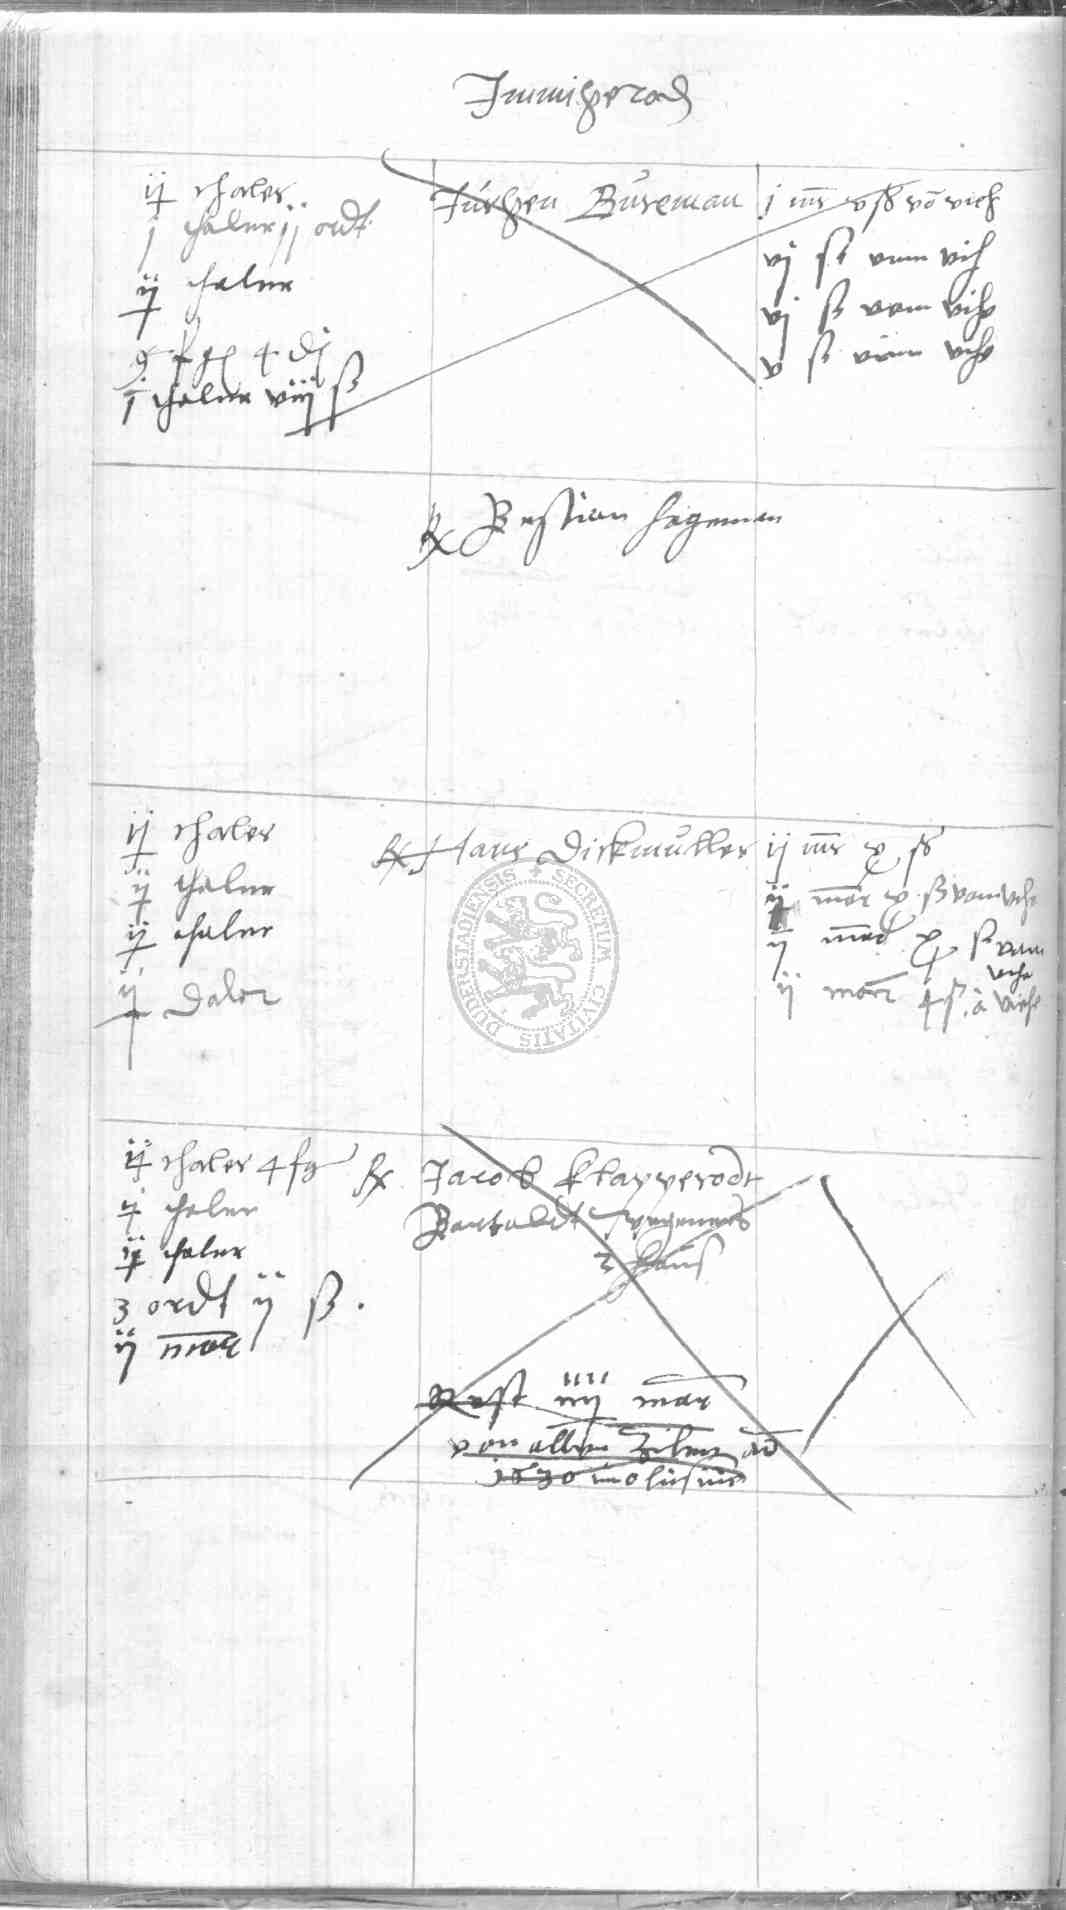 Immigerod
ij thaler
j thaler ij ordt
ij thaler
j thaler viij ß
Jürgen Büreman
j mr vß vō vieh
vj ß vom vih
vj ß vom vihe
v ß vom vihe
Bestian Hageman
ij thaler
ij thaler
ij thaler
ij Daler
Hans Dickmüller
ij mr x ß
ij mar x ß vom vihe
ij mar x ß vom
vihe
ij mar ß à viehe
SECRETUM CIVITATIS DUDERSTADIENSIS
ij thaler 4 fg
ij thaler
ij thaler
3 ordt ij ß.
ij mar
Jacob Klapperodt
Bartoldt Wegeners
Haus
Rest iiij mar
von allen Zilen